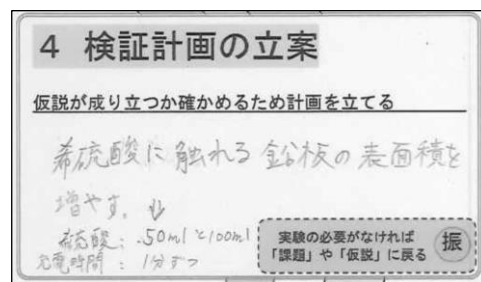 4 検証計画の立案
仮説が成り立つか確かめるため計画を立てる
希硫酸に触れる鉛板の表面積を
増やす。↓
希硫酸:50mlと100ml
充電時間:1分ずつ
実験の必要がなければ
「課題」や「仮説」に戻る
振